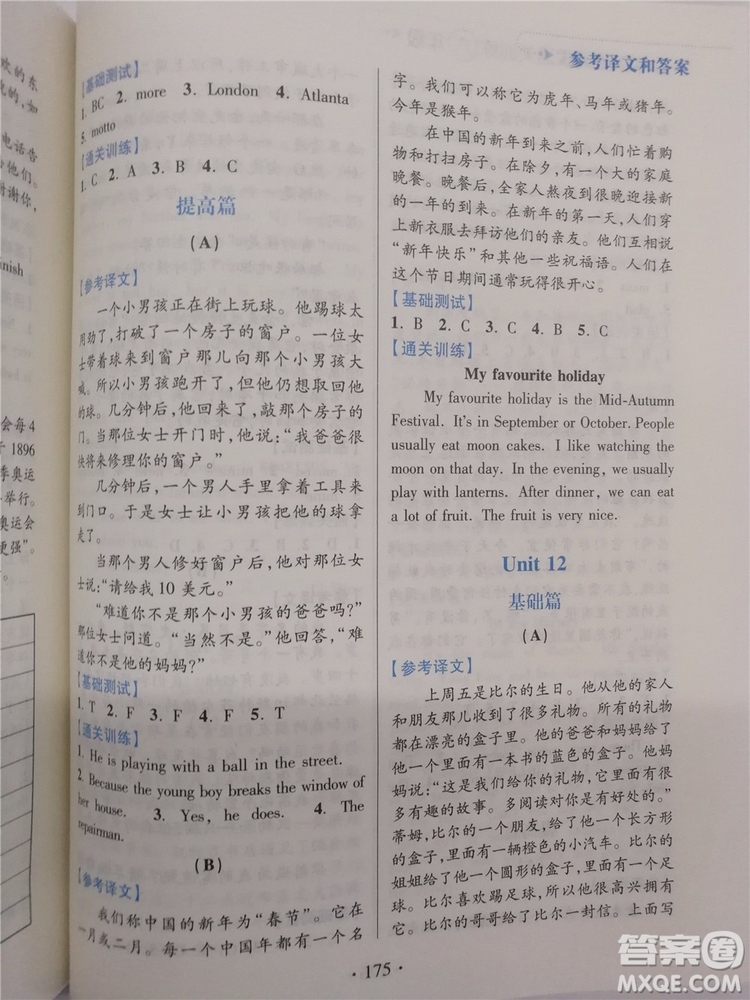 参考译文和答案
欢的东
说的，如
电话告
他们。
谢谢你，
finish
会每4
于 1896
季奥运
举行。
奥运会
更强”。
【基础测试】
1. BC 2. more 3. London 4. Atlanta
5. motto
【通关训练】
1. C 2. A 3. B 4. C
提高篇
(A)
【参考译文】
一个小男孩正在街上玩球。他踢球太
用劲了，打破了一个房子的窗户。一位女
士带着球来到窗户那儿向那个小男孩大
喊。所以小男孩跑开了，但他仍想要回他
的球。几分钟后，他回来了，敲那个房子的
门。当那位女士开门时，他说：“我爸爸很
快将来修理你的窗户。”
几分钟后，一个男人手里拿着工具来
到门口。于是女士让小男孩把他的球拿
走了。
当那个男人修好窗户后，他对那位女
士说：“请给我 10 美元。”
“难道你不是那个小男孩的爸爸吗？”
那位女士问道。“当然不是。”他回答，“难
道你不是他的妈妈？”
【基础测试】
1. T 2. F 3. F 4. F 5. T
【通关训练】
1. He is playing with a ball in the street.
2. Because the young boy breaks the window of
her house. 3. Yes, he does. 4. The
repairman.
(B)
【参考译文】
我们称中国的新年为“春节”。它在
一月或二月。每一个中国年都有一个名
字。我们可以称它为虎年、马年或猪年。
今年是猴年。
在中国的新年到来之前，人们忙着购
物和打扫房子。在除夕，有一个大的家庭
晚餐。晚餐后，全家人熬夜到很晚迎接新
的一年的到来。在新年的第一天，人们穿
上新衣服去拜访他们的亲友。他们互相说
“新年快乐”和其他一些祝福语。人们在
这个节日期间通常玩得很开心。
【基础测试】
1. B 2. C 3. C 4. B 5. C
【通关训练】
My favourite holiday
My favourite holiday is the Mid-Autumn
Festival. It's in September or October. People
usually eat moon cakes. I like watching the
moon on that day. In the evening, we usually
play with lanterns. After dinner, we can eat
a lot of fruit. The fruit is very nice.
Unit 12
基础篇
(A)
【参考译文】
上周五是比尔的生日。他从他的家人
和朋友那儿收到了很多礼物。所有礼物都
在漂亮的盒子里。他的爸爸和妈妈给了他
一个里面有一本书的蓝色的盒子。他妈妈
说：“这是我们给你的礼物，它里面有许
多有趣的故事。多阅读对你有好处的。”
蒂姆，比尔的一个朋友，给了他一个长方形
的盒子，里面有一辆橙色的小汽车。比尔的
姐姐给了他一个圆形的盒子，里面有一个足
球。比尔喜欢踢足球，所以他很高兴拥有
球。比尔的哥哥给了比尔一封信。上面写
· 175 ·
答案圈
MXQE.COM